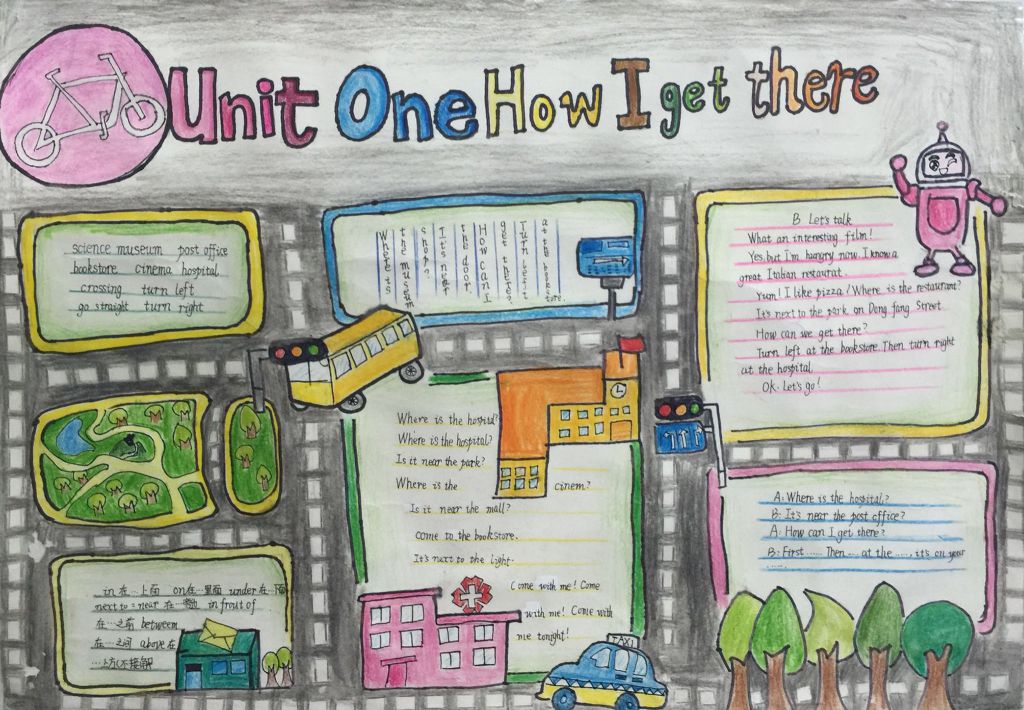 Unit One How I get there
science museum post office
bookstore cinema hospital
crossing turn left
go straight turn right
Where is
the museum
shop?
It's near
the door.
How can I
get there?
Turn left
at the bookstore.
B Let's talk
What an interesting film!
Yes, but I'm hungry now. I know a
great Italian restaurat.
Yum! I like pizza! Where is the restaurant?
It's next to the park on Dong fang Street.
How can we get there?
Turn left at the bookstore. Then turn right
at the hospital.
OK. Let's go!
Where is the hospital?
Where is the hospital?
Is it near the park?
Where is the cinem?
Is it near the mall?
come to the bookstore.
It's next to the light.
Come with me! Come
with me! Come with
me tonight!
A: Where is the hospital?
B: It's near the post office?
A: How can I get there?
B: First ..... Then ... at the ....., it's on your
......
in 在…上面 on在…里面 under在…下面
next to = near 在… in frout of
在…之前 betweem
在…之间 above 在
…上方(不接触
TAXI